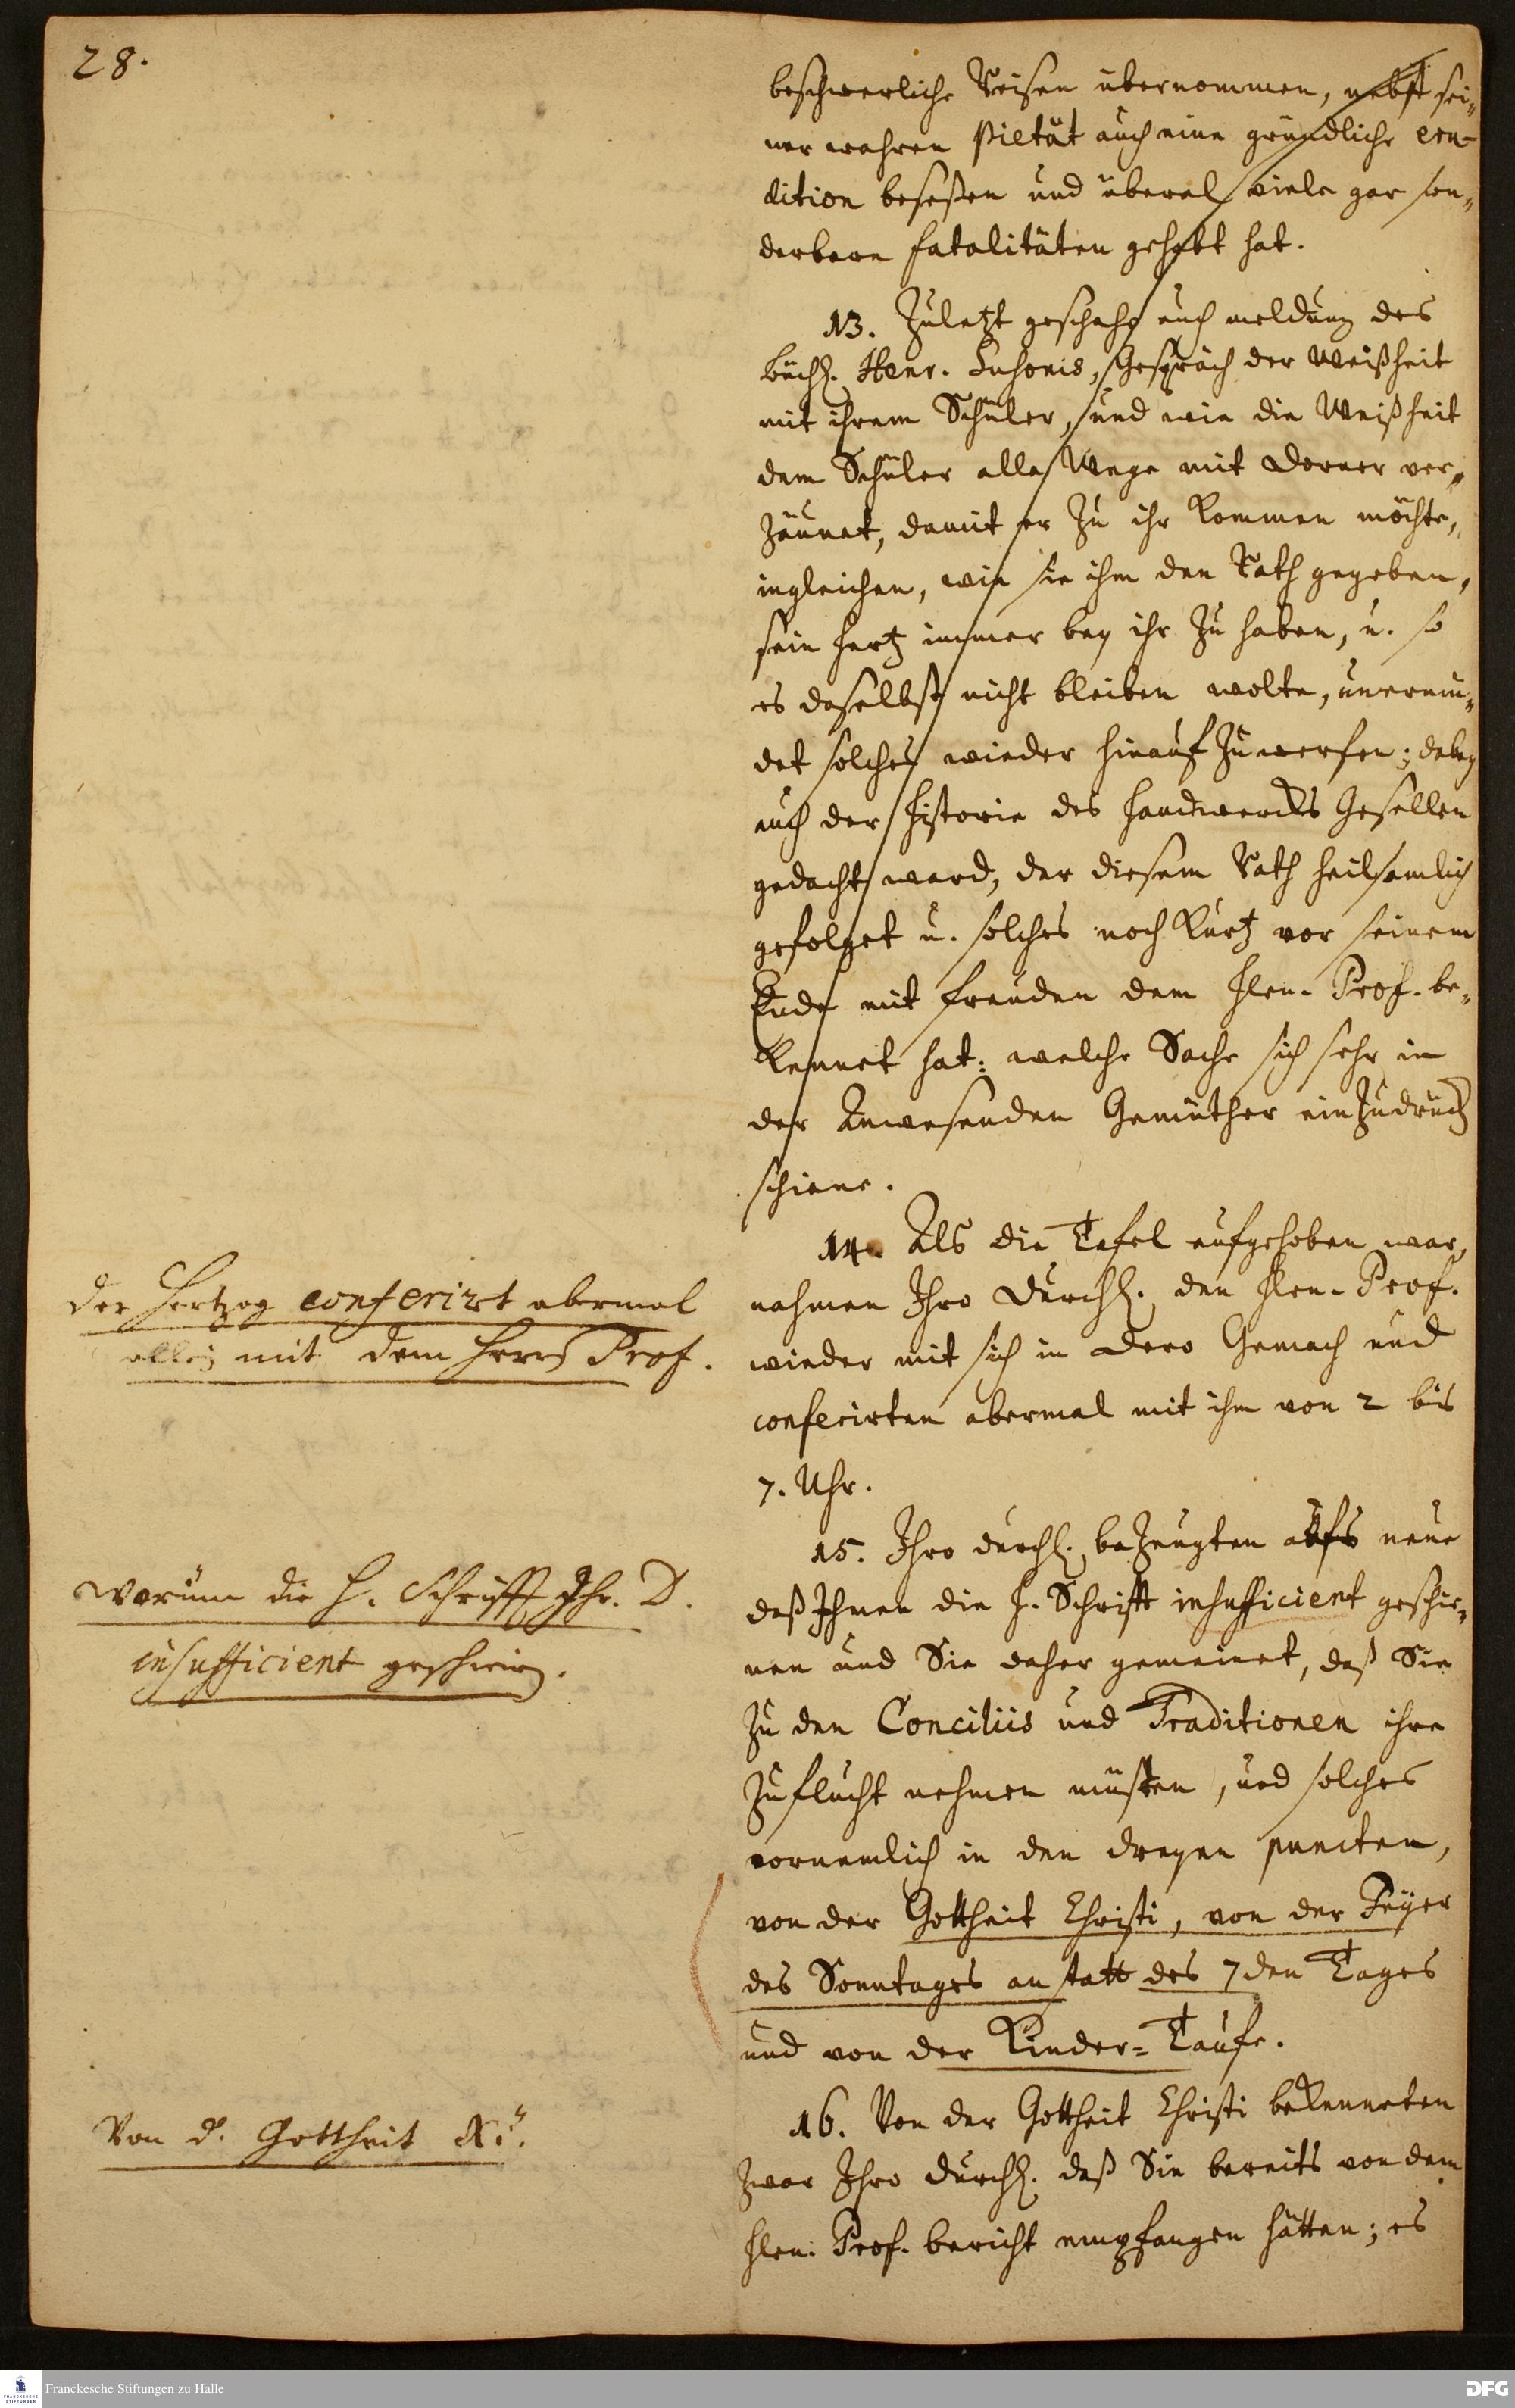 28.
beschwerliche Reisen übernommen, nebst sei¬
ner wahren Pietät auch eine gründliche eru-
dition beseßen und überal viele gar son¬
derbare fatalitäten gehabt hat.
13. Zuletzt geschahe auch meldung des
büchl. Henr. Susonis, Gespräch der Weißheit
mit ihrem Schüler, und wie die Weißheit
dem Schüler alle Wege mit Dorner ver¬
zäunet, damit er zu ihr kommen möchte,
ingleichen, wie sie ihm den Rath gegeben,
sein Hertz immer bey ihr zu haben, u. so
es daselbst nicht bleiben wolte, unermü¬
det solches wieder hinauf zu werfen; dabey
auch der Historie des Handwercks Gesellen
gedacht ward, der diesem Rath heilsamlich
gefolget u. solches noch kurtz vor seinem
Ende mit Freuden dem Hen. Prof. be¬
kennet hat: welche Sache sich sehr in
der Anwesenden Gemüther einzudrück
schiene.
14. Als die Tafel aufgehoben war,
nahmen Ihro Durchl. den Hen. Prof.
wieder mit sich in Dero Gemach und
conferirten abermal mit ihm von 2 bis
7. Uhr.
Der Hertzog conferirt abermal
allein mit dem Herrn Prof.
15. Ihro Durchl. bezeugten aufs neue
daß Ihnen die H. Schrifft insufficient geschie¬
nen und Sie daher gemeinet, daß Sie
zu den Conciliis und Traditionen ihre
Zuflucht nehmen müsten, und solches
vornemlich in den dreyen puncten,
von der Gottheit Christi, von der Feyer
des Sonntages anstatt des 7den Tages
und von der Kinder=Taufe.
Warum die H. Schrifft Ihr. D.
insufficient geschienen.
16. Von der Gottheit Christi bekenneten
zwar Ihro Durchl. daß Sie bereits von dem
Hen. Prof. bericht empfangen hätten; es
Von d. Gottheit Xi.
Franckesche Stiftungen zu Halle
FRANCKESCHE STIFTUNGEN
DFG